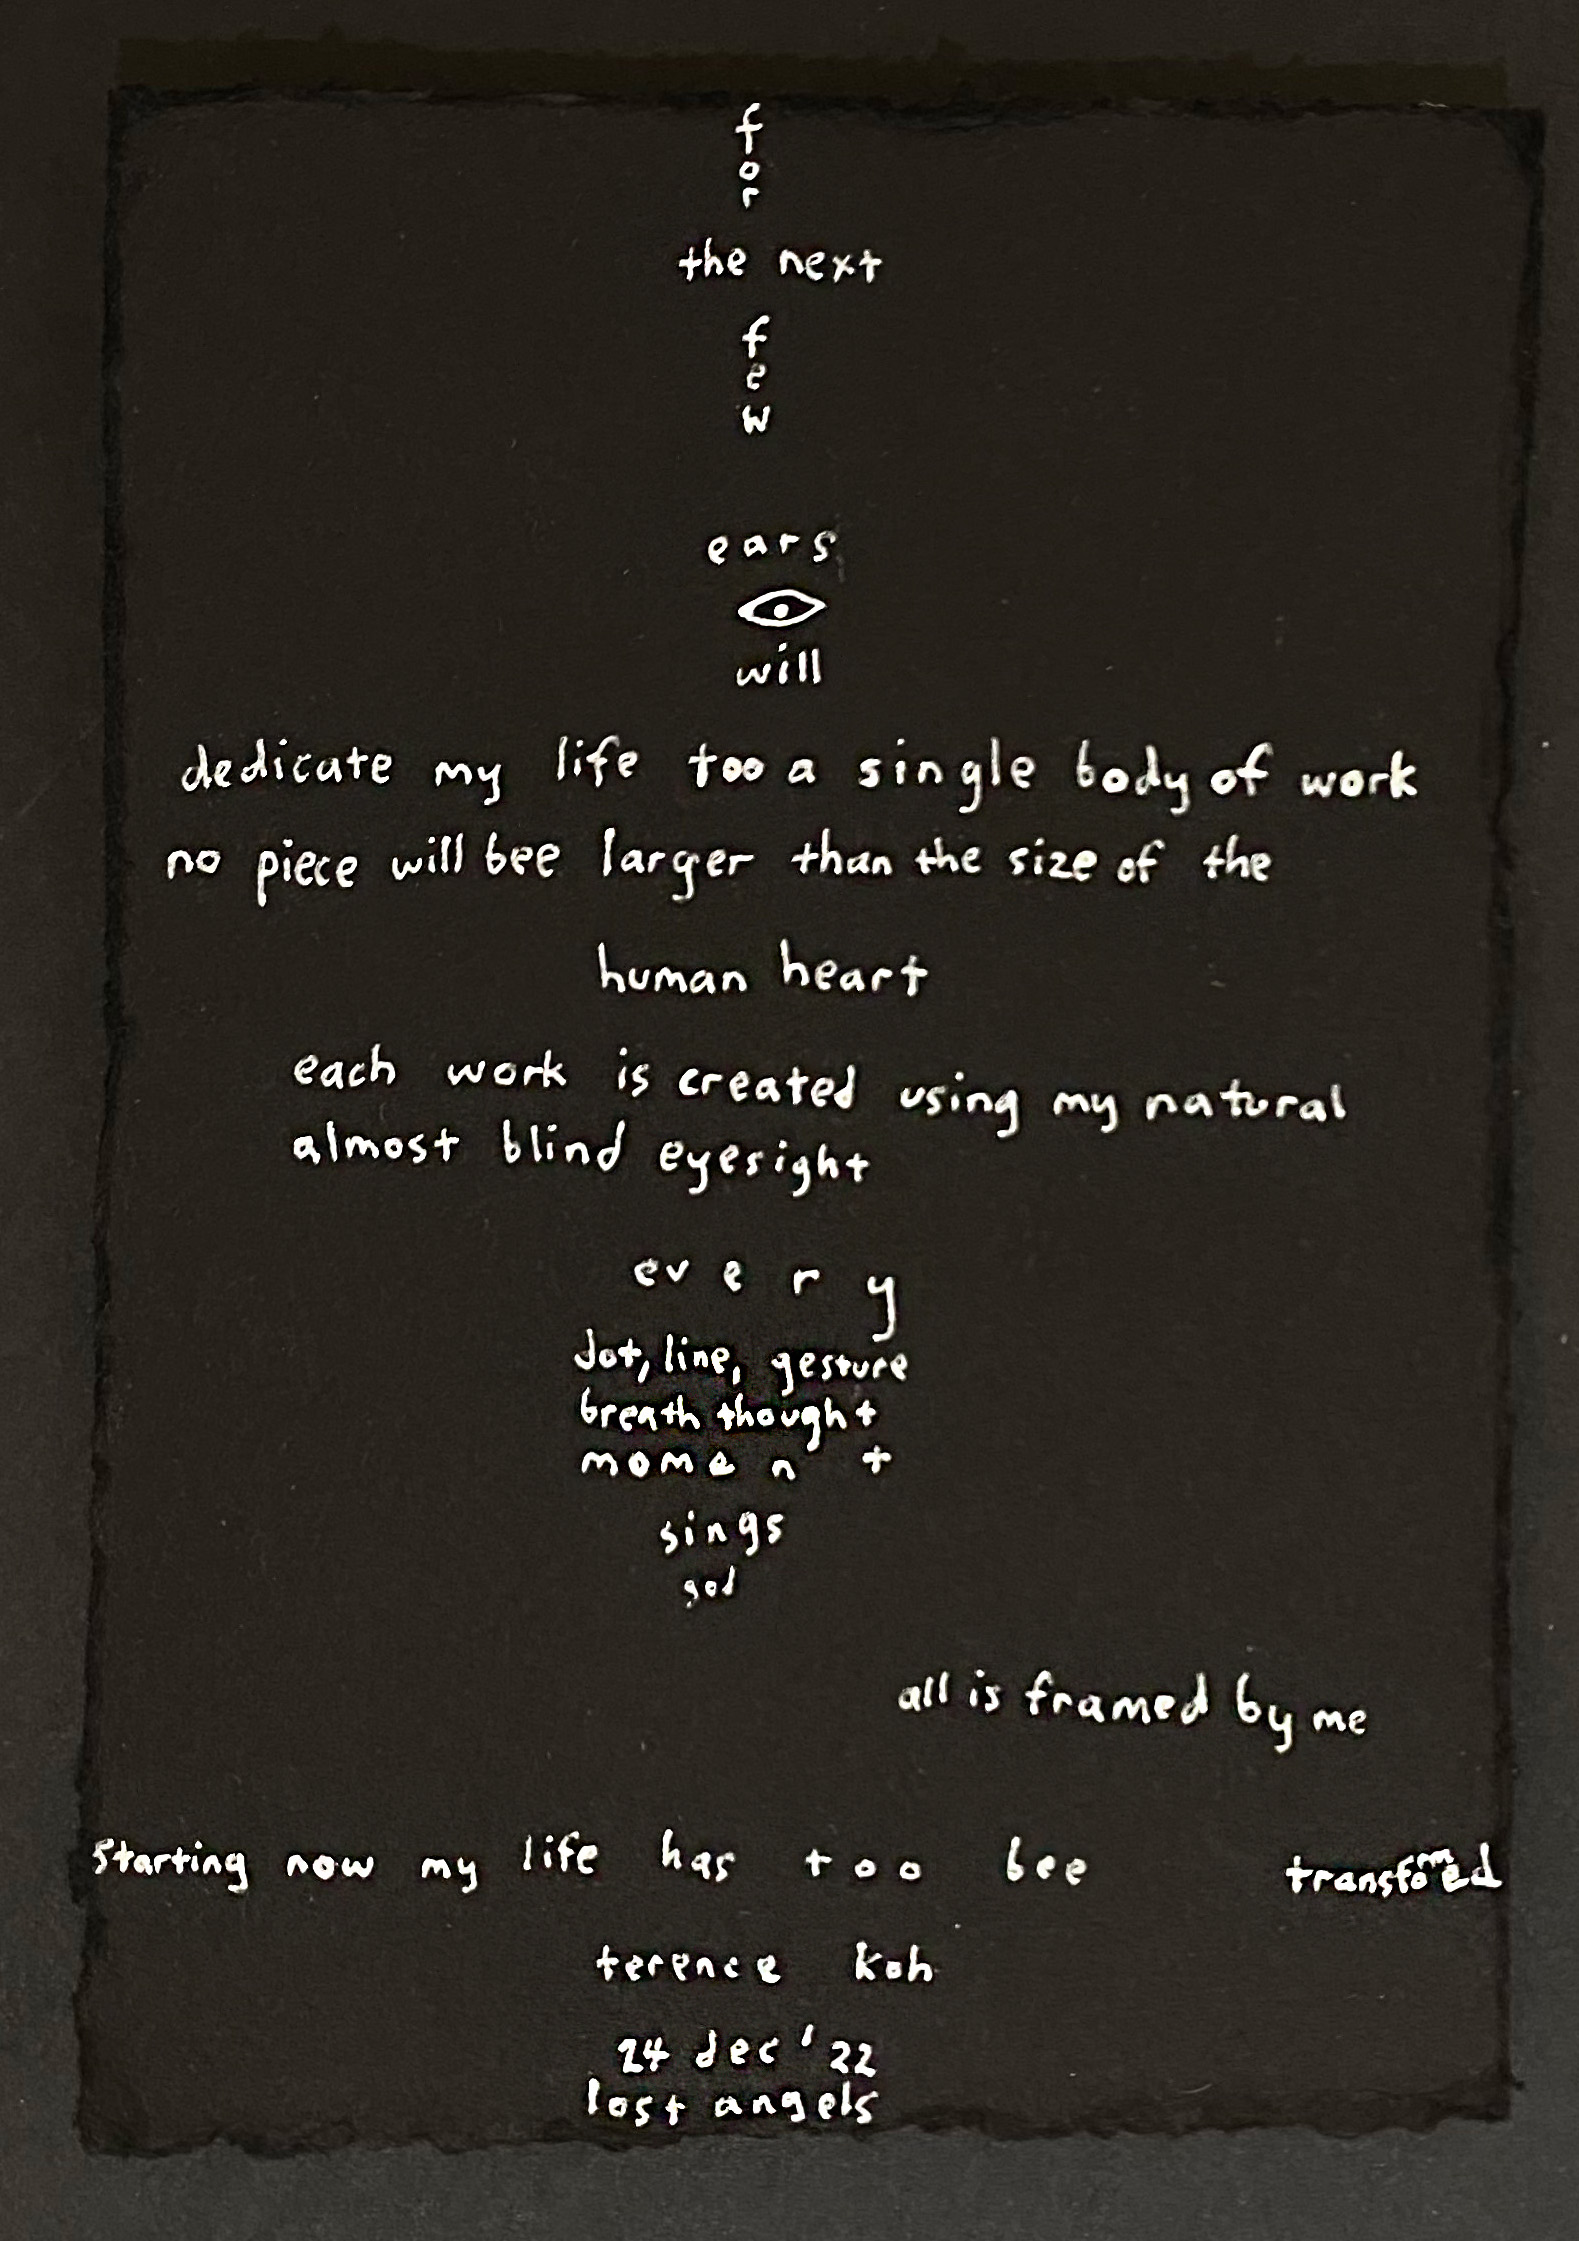 f
o
r
the next
f
e
w
ears
will
dedicate my life too a single body of work
no piece will bee larger than the size of the
human heart
each work is created using my natural
almost blind eyesight
every
dot, line, gesture
breath thought
moment
sings
god
all is framed by me
starting now my life has too bee transformed
terence koh
24 dec '22
lost angels